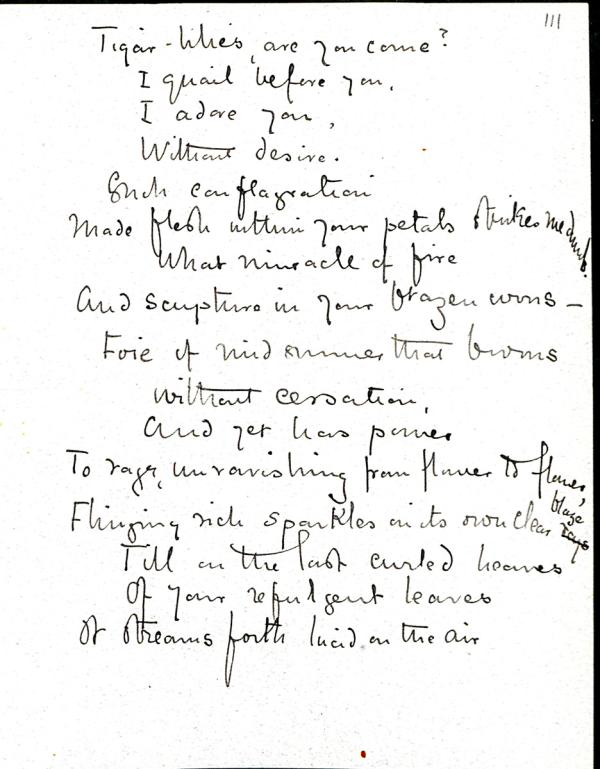 111
Tiger-lilies, are you come?
I quail before you,
I adore you,
Without desire.
Such conflagration
Made flesh within your petals strikes me dumb.
What miracle of fire
And sculpture in your brazen
Fire of midsummer that burns
without cessation,
And yet has power
To rage, unravishing from flower to flower,
Flinging rich sparkles on its own clear blaze
Till on the last curled heaves
Of your refulgent leaves
It streams forth lucid on the air